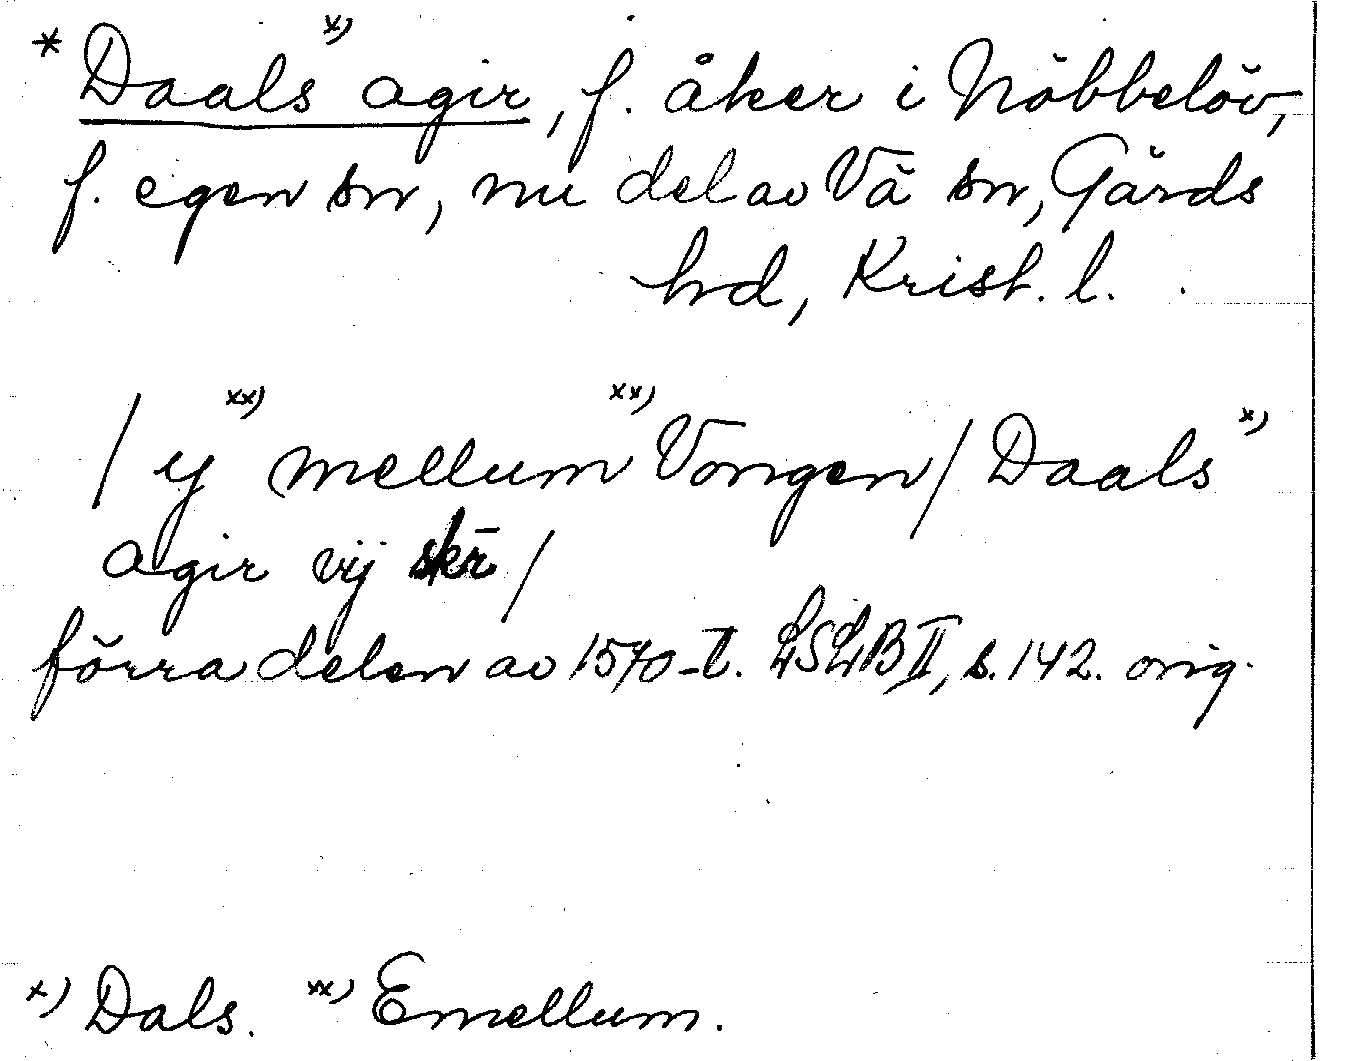 * Daals x) agir, f. åker i Nöbbelöv,
f. egen sn, nu del av Vä sn, Gärds
hd, Krist. l.
/ y xx) mellum xx) Vongen / Daals x)
agir vij skr /
förra delen av 1570-t. LSLB II, s. 142. orig.
x) Dals. xx) Emellum.